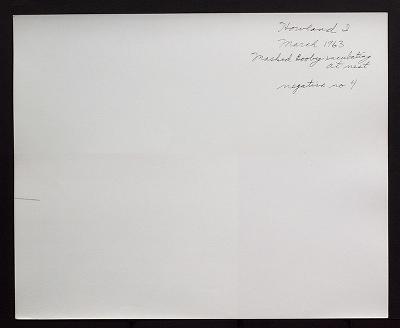 Howland I
March 1963
Masked Booby incubating
at nest
negative no 4